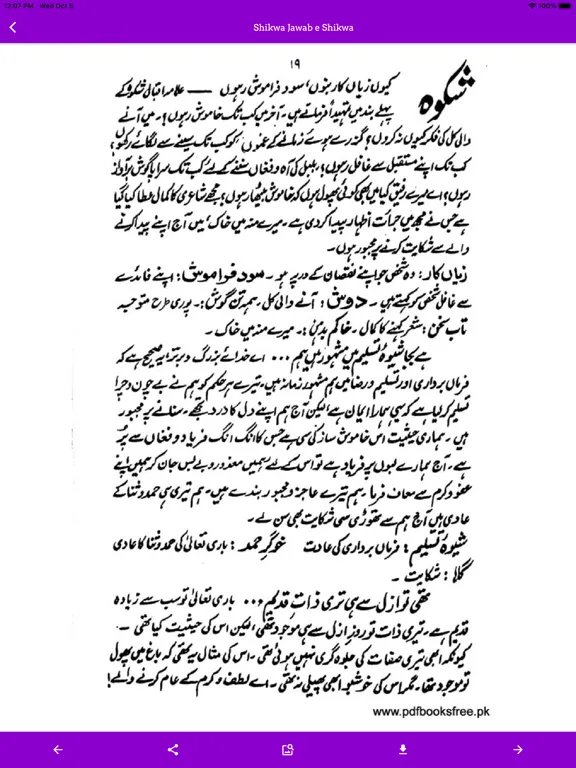 12:07 PM Wed Oct 6
100%
Shikwa Jawab e Shikwa
۱۹
شکوہ
کیوں زیاں کار بنوں، سود فراموش رہوں —— علامہ اقبال شکوہ کے
پہلے بند میں تمہیداً فرماتے ہیں۔ آخر میں کب تک خاموش رہوں؟۔ میں آنے
والی کل کی فکر کیوں نہ کروں؟ گزرے ہوئے زمانے کے غموں کو کب تک سینے سے لگائے رکھوں؟
کب تک اپنے مستقبل سے غافل رہوں؟، بلبل کی آہ و فغاں سننے کے لئے کب تک سراپا گوش بر آواز
رہوں؟ اے میرے رفیق کیا میں بھی کوئی پھول ہوں کہ خاموش بیٹھا رہوں؟ مجھے شاعری کا کمال عطا کیا گیا
ہے جس نے مجھ میں جرأت اظہار پیدا کر دی ہے۔ میرے منہ میں خاک، میں آج اپنے پیدا کرنے
والے سے شکایت کرنے پر مجبور ہوں۔
زیاں کار: وہ شخص جو اپنے نقصان کے درپے ہو۔ سود فراموش: اپنے فائدے
سے غافل شخص کو کہتے ہیں۔ دوش: آنے والی کل، ہمہ تن گوش: پوری طرح متوجہ
تاب سخن: شعر کہنے کا کمال۔ خاکم بدہن: میرے منہ میں خاک۔
ہے بجا شیوۂ تسلیم میں مشہور ہیں ہم ... اے خدائے بزرگ و برتر! یہ صحیح ہے کہ
فرماں برداری اور تسلیم و رضا میں ہم مشہور زمانہ ہیں۔ تیرے ہر حکم کو ہم نے بے چون و چرا
تسلیم کر لیا ہے کہ یہی ہمارا ایمان ہے لیکن آج ہم اپنے دل کا درد تجھے سنانے پر مجبور
ہیں۔ ہماری حیثیت اس خاموش ساز کی سی ہے جس کا انگ انگ فریاد و فغاں سے پُر
ہے۔ آج ہمارے لبوں پر فریاد ہے تو اس کے لیے ہمیں معذور و بے بس جان کر ہمیں اپنے
عفو و کرم سے معاف فرما۔ ہم تیرے عاجز و مجبور بندے ہیں۔ ہم تیری ہی حمد و ثنا کے
عادی ہیں آج ہم سے تھوڑی سی شکایت بھی سن لے۔
شیوۂ تسلیم: فرماں برداری کی عادت خوگر حمد: باری تعالیٰ کی حمد و ثنا کا عادی
گلا: شکایت۔
تھی تو ازل سے ہی تری ذات قدیم ... باری تعالیٰ تو سب سے زیادہ
قدیم ہے۔ تیری ذات تو روز ازل سے ہی موجود تھی، لیکن اس کی حیثیت کیا تھی۔
کیونکہ ابھی تیری صفات کی جلوہ گری نہیں ہوئی تھی۔ اس کی مثال یہ تھی کہ باغ میں پھول
تو موجود تھا۔ مگر اس کی خوشبو ابھی پھیلی نہ تھی۔ اے لطف و کرم کے عام کرنے والے!
www.pdfbooksfree.pk